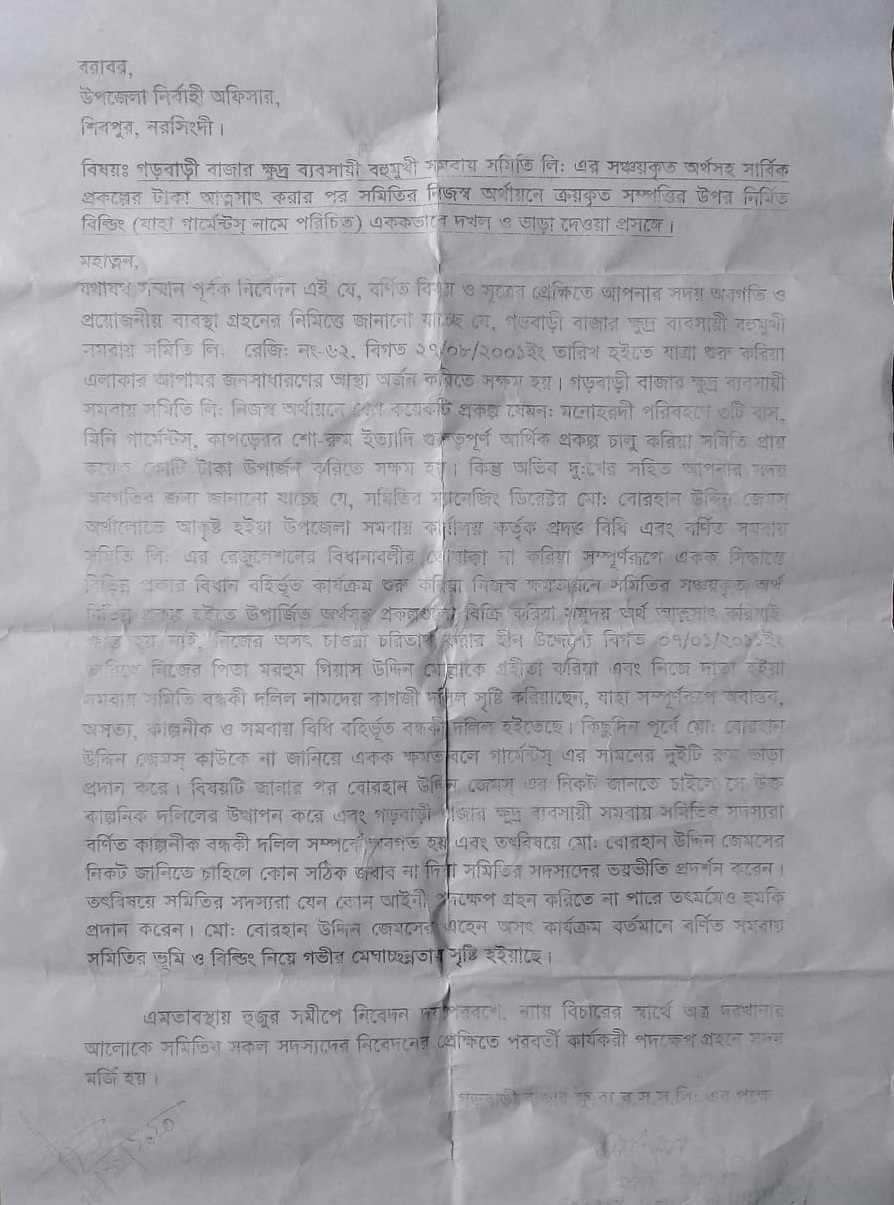 বরাবর,
উপজেলা নির্বাহী অফিসার,
শিবপুর, নরসিংদী।
বিষয়ঃ গড়বাড়ী বাজার ক্ষুদ্র ব্যবসায়ী বহুমুখী সমবায় সমিতি লি: এর সঞ্চয়কৃত অর্থসহ সার্বিক
প্রকল্পের টাকা আত্মসাৎ করার পর সমিতির নিজস্ব অর্থায়নে ক্রয়কৃত সম্পত্তির উপর নির্মিত
বিল্ডিং (যাহা গার্মেন্টস্ নামে পরিচিত) এককভাবে দখল ও ভাড়া দেওয়া প্রসঙ্গে।
মহাত্নন,
যথাযথ সম্মান পূর্বক নিবেদন এই যে, বর্ণিত বিষয় ও সূত্রের প্রেক্ষিতে আপনার সদয় অবগতি ও
প্রয়োজনীয় ব্যবস্থা গ্রহনের নিমিত্তে জানানো যাচ্ছে যে, গড়বাড়ী বাজার ক্ষুদ্র ব্যবসায়ী বহুমুখী
সমবায় সমিতি লি: রেজি: নং-৬২, বিগত ২৭/০৮/২০০১ইং তারিখ হইতে যাত্রা শুরু করিয়া
এলাকার আপামর জনসাধারণের আস্থা অর্জন করিতে সক্ষম হয়। গড়বাড়ী বাজার ক্ষুদ্র ব্যবসায়ী
সমবায় সমিতি লি: নিজস্ব অর্থায়নে বেশ কয়েকটি প্রকল্প যেমন: মনোহরদী পরিবহণে ৩টি বাস,
মিনি গার্মেন্টস্, কাপড়ের শো-রুম ইত্যাদি গুরুত্বপূর্ণ আর্থিক প্রকল্প চালু করিয়া সমিতি প্রায়
কয়েক কোটি টাকা উপার্জন করিতে সক্ষম হয়। কিন্তু অতিব দু:খের সহিত আপনার সদয়
অবগতির জন্য জানানো যাচ্ছে যে, সমিতির ম্যানেজিং ডিরেক্টর মো: বোরহান উদ্দিন জেমস্
অর্থলোভে আকৃষ্ট হইয়া উপজেলা সমবায় কার্যালয় কর্তৃক প্রদত্ত বিধি এবং বর্ণিত সমবায়
সমিতি লি: এর রেজুলেশনের বিধানাবলীর তোয়াক্কা না করিয়া সম্পূর্ণরূপে একক সিদ্ধান্তে
বিভিন্ন প্রকার বিধান বহির্ভূত কার্যক্রম শুরু করিয়া নিজস্ব ক্ষমতায়নে সমিতির সঞ্চয়কৃত অর্থ
বিভিন্ন প্রকল্প হইতে উপার্জিত অর্থসহ প্রকল্পগুলো বিক্রি করিয়া সমুদয় অর্থ আত্মসাৎ করিয়াই
ক্ষান্ত হয় নাই, নিজের অসৎ চাওয়া চরিতার্থ করার হীন উদ্দেশ্যে বিগত
তারিখে নিজের পিতা মরহুম গিয়াস উদ্দিন মোল্লাকে গ্রহীতা করিয়া এবং নিজে দাতা হইয়া
সমবায় সমিতি বন্ধকী দলিল নামদেয় কাগজী দলিল সৃষ্টি করিয়াছেন, যাহা সম্পূর্ণরূপে অবাস্তব,
অসত্য, কাল্পনীক ও সমবায় বিধি বহির্ভূত বন্ধকী দলিল হইতেছে। কিছুদিন পূর্বে মো: বোরহান
উদ্দিন জেমস্ কাউকে না জানিয়ে একক ক্ষমতাবলে গার্মেন্টস্ এর সামনের দুইটি রুম ভাড়া
প্রদান করে। বিষয়টি জানার পর বোরহান উদ্দিন জেমস্ এর নিকট জানতে চাইলে সে উক্ত
কাল্পনিক দলিলের উত্থাপন করে এবং গড়বাড়ী বাজার ক্ষুদ্র ব্যবসায়ী সমবায় সমিতির সদস্যরা
বর্ণিত কাল্পনীক বন্ধকী দলিল সম্পর্কে অবগত হয় এবং তৎবিষয়ে মো: বোরহান উদ্দিন জেমসের
নিকট জানিতে চাহিলে কোন সঠিক জবাব না দিয়া সমিতির সদস্যদের ভয়ভীতি প্রদর্শন করেন।
তৎবিষয়ে সমিতির সদস্যরা যেন কোন আইনী পদক্ষেপ গ্রহন করিতে না পারে তৎমর্মেও হুমকি
প্রদান করেন। মো: বোরহান উদ্দিন জেমসের এহেন অসৎ কার্যক্রম বর্তমানে বর্ণিত সমবায়
সমিতির ভূমি ও বিল্ডিং নিয়ে গভীর মেঘাচ্ছন্নতার সৃষ্টি হইয়াছে।
এমতাবস্থায় হুজুর সমীপে নিবেদন দয়াপরবশে, ন্যায় বিচারের স্বার্থে অত্র দরখাস্তের
আলোকে সমিতির সকল সদস্যদের নিবেদনের প্রেক্ষিতে পরবর্তী কার্যকরী পদক্ষেপ গ্রহনে সদয়
মর্জি হয়।
গড়বাড়ী বাজার ক্ষু.ব্য.ব.স.স.লি: এর পক্ষে